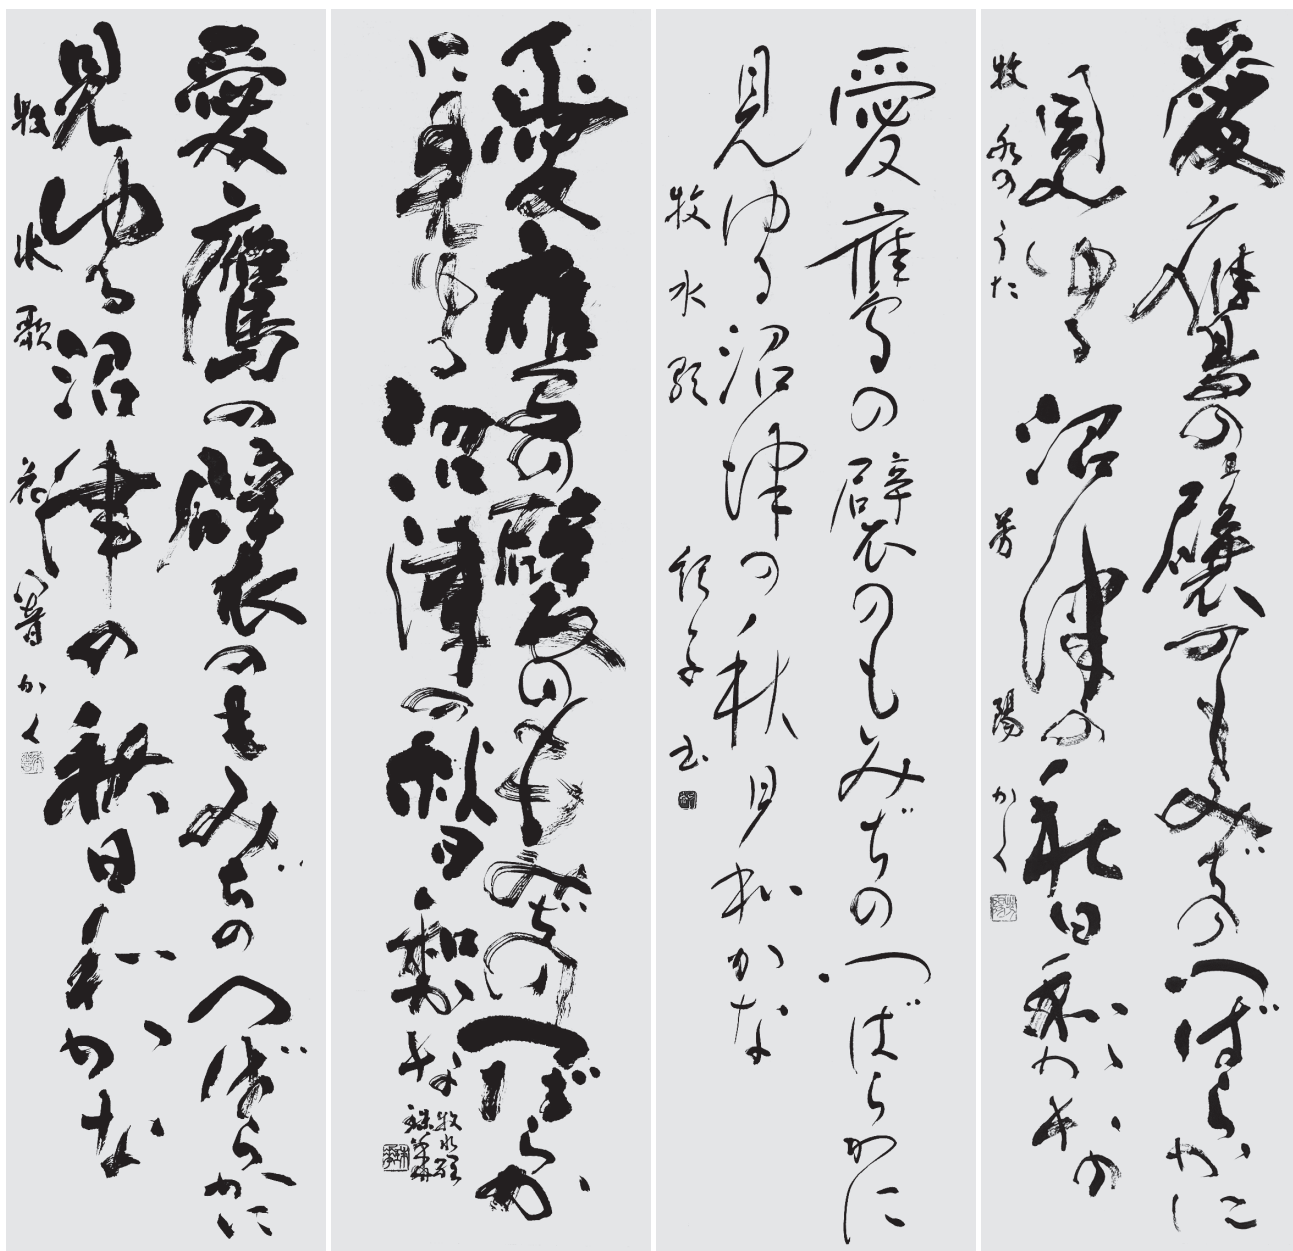 愛鷹の襞のもみぢのつばらかに
見ゆる沼津の秋日和かな
牧水のうた 芳陽かく
愛鷹の襞のもみぢのつばらかに
見ゆる沼津の秋日和かな
牧水歌 紀子書
愛鷹の襞のもみぢのつばらか
に見ゆる沼津の秋日和かな
牧水歌
愛鷹の襞のもみぢのつばらかに
見ゆる沼津の秋日和かな
牧水歌 かく